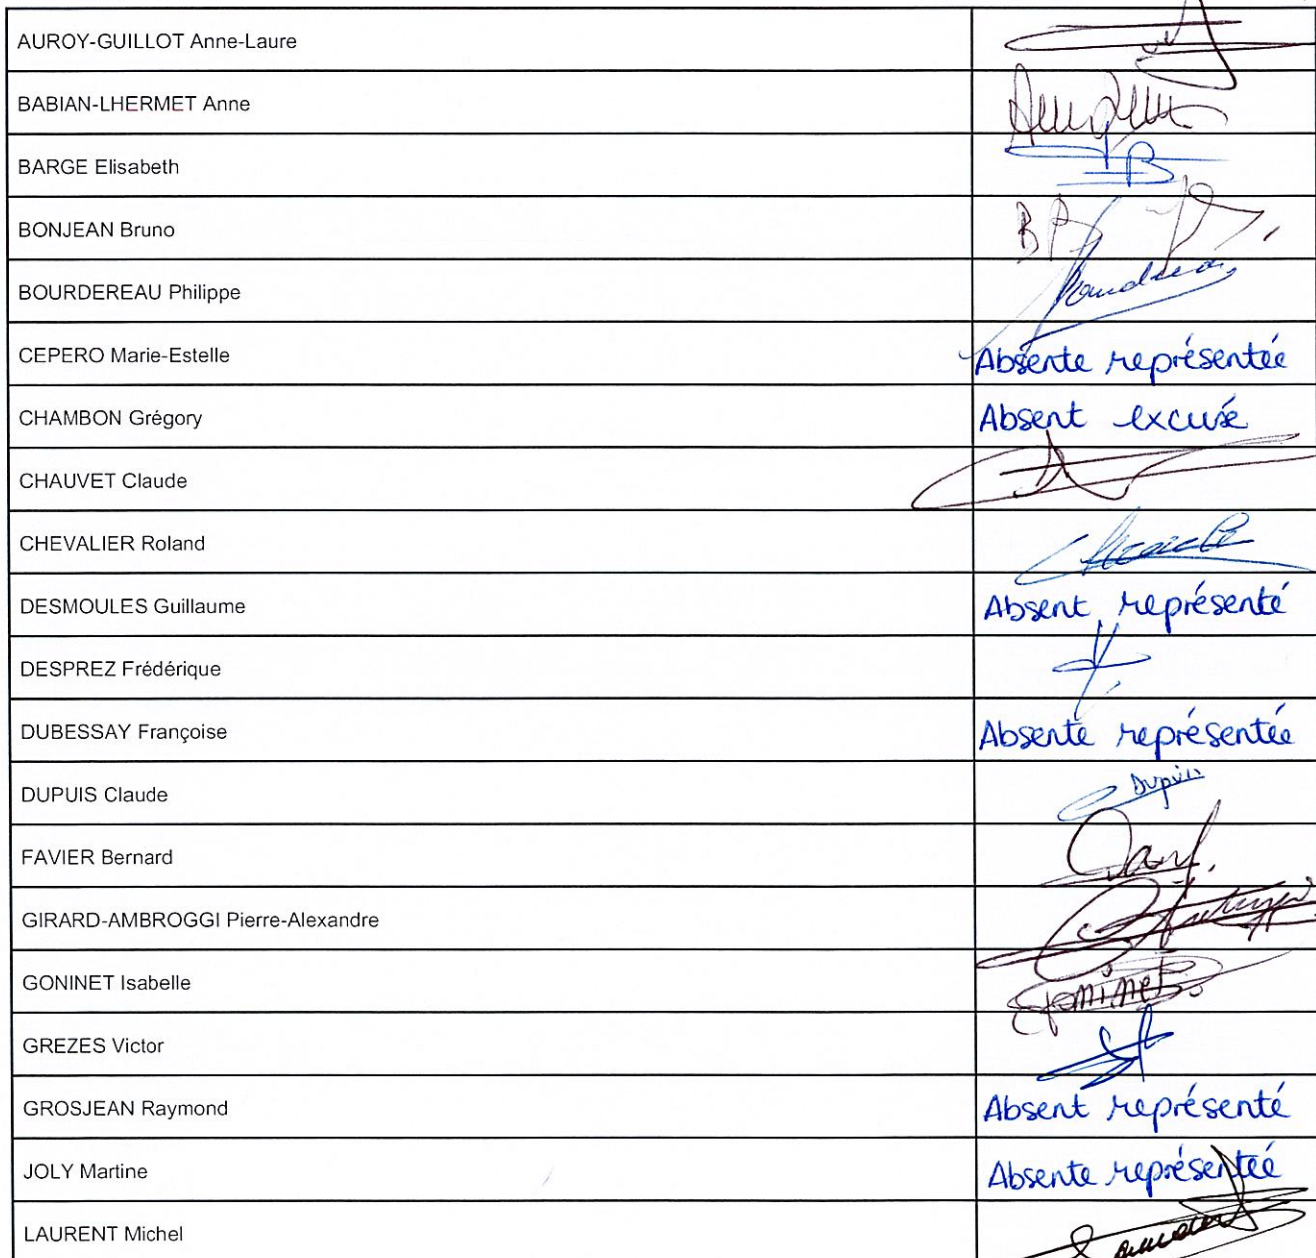 AUROY-GUILLOT Anne-Laure
BABIAN-LHERMET Anne
BARGE Elisabeth
BONJEAN Bruno BB
BOURDEREAU Philippe
CEPERO Marie-Estelle Absente représentée
CHAMBON Grégory Absent excusé
CHAUVET Claude
CHEVALIER Roland
DESMOULES Guillaume Absent représenté
DESPREZ Frédérique
DUBESSAY Françoise Absente représentée
DUPUIS Claude Dupuis
FAVIER Bernard
GIRARD-AMBROGGI Pierre-Alexandre
GONINET Isabelle Goninet
GREZES Victor
GROSJEAN Raymond Absent représenté
JOLY Martine Absente représentée
LAURENT Michel